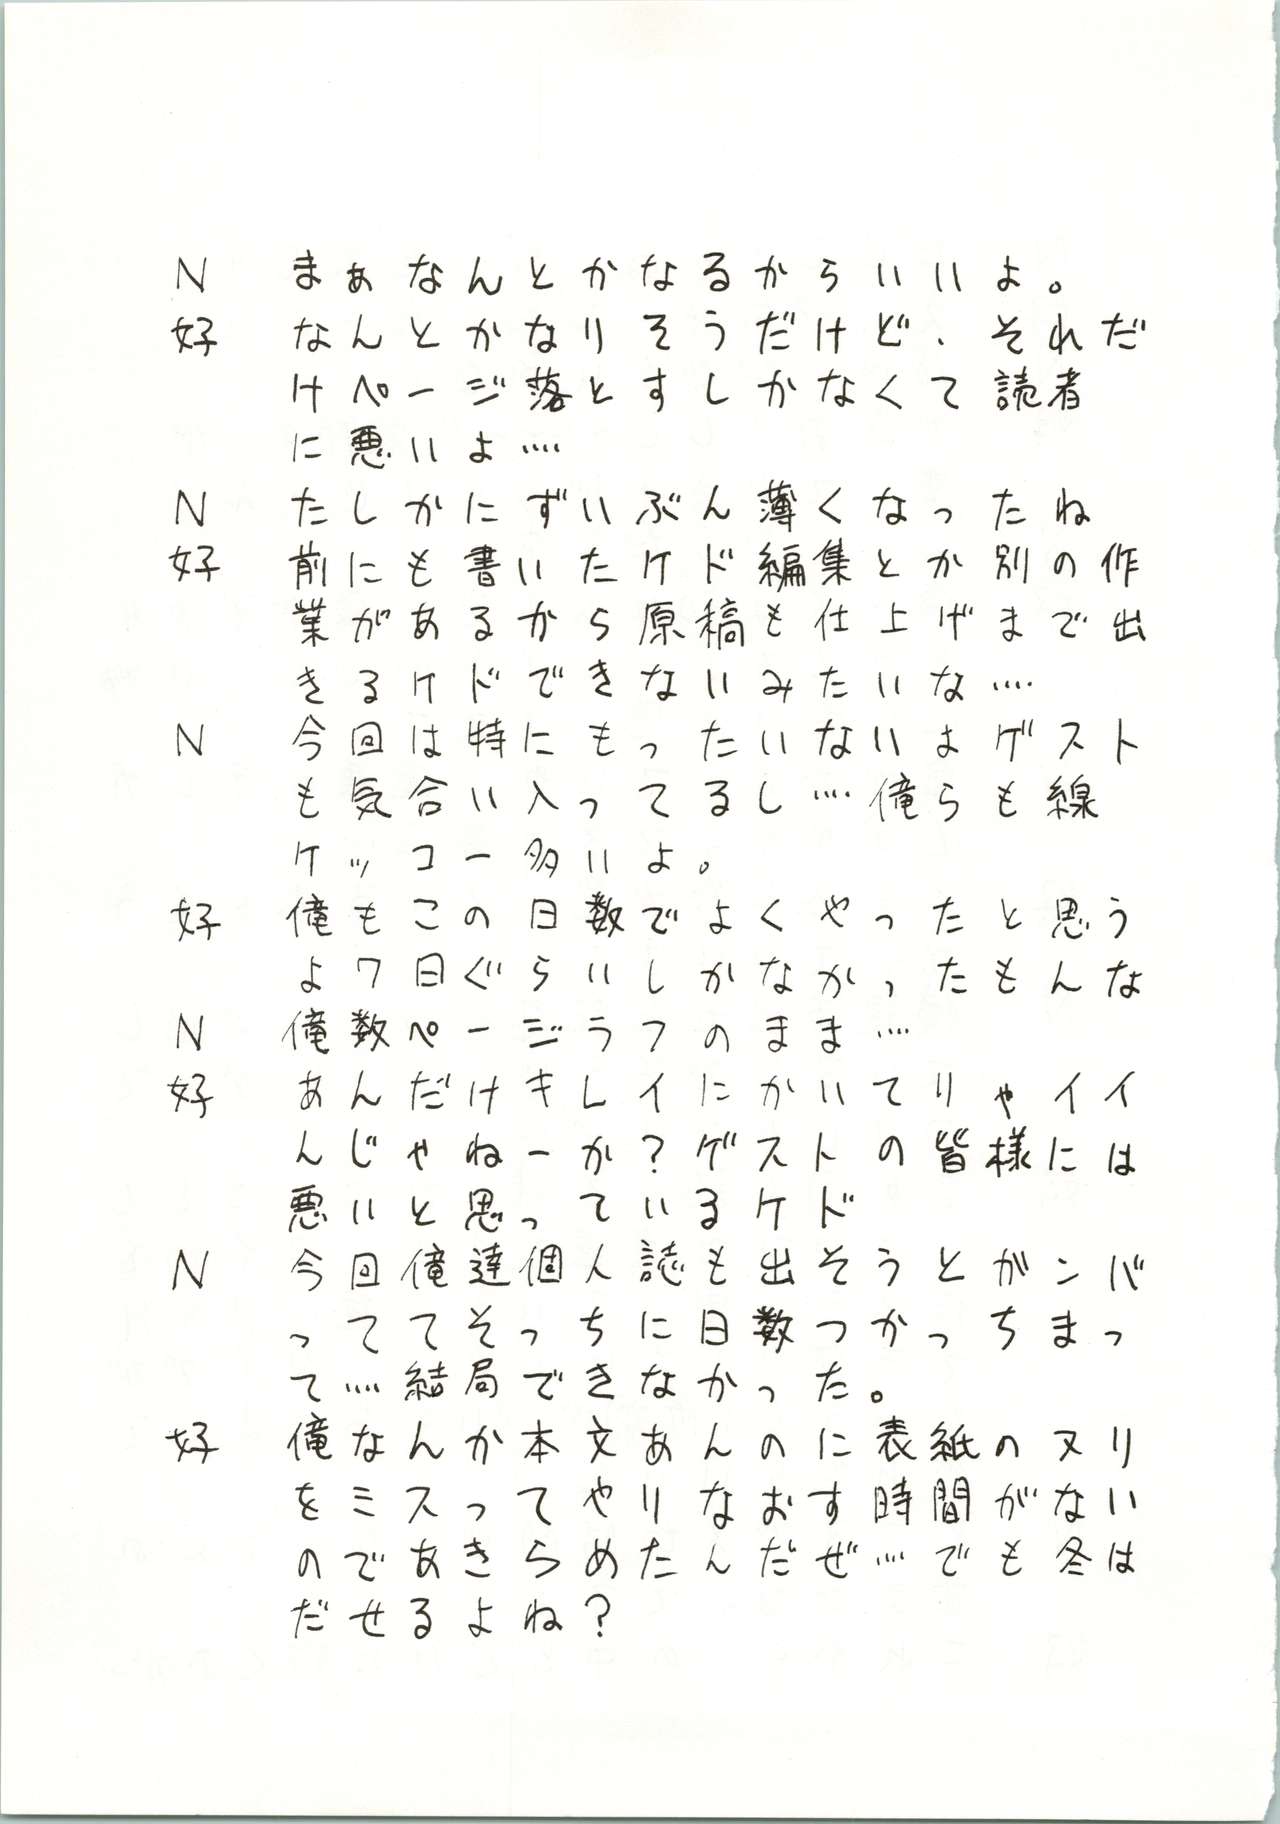 N まぁなんとかなるからいいよ。
好 なんとかなりそうだけど、それだ
けページ落とすしかなくて読者
に悪いよ‥‥
N たしかにずいぶん薄くなったね
好 前にも書いたケド編集とか別の作
業があるから原稿も仕上げまで出
きるケドできないみたいな‥‥
N 今回は特にもったいないよゲスト
も気合い入ってるし‥‥俺らも線
ケッコー多いよ。
好 俺もこの日数でよくやったと思う
よ7日ぐらいしかなかったもんな
N 俺数ページラフのまま‥‥
好 あんだけキレイにかいてりゃイイ
んじゃねーか?ゲストの皆様には
悪いと思っているケド
N 今回俺達個人誌も出そうとがンバ
っててそっちに日数つかっちまっ
て‥‥結局できなかった。
好 俺なんか本文あんのに表紙のヌリ
をミスってやりなおす時間がない
のであきらめたんだぜ‥‥でも冬は
だせるよね?